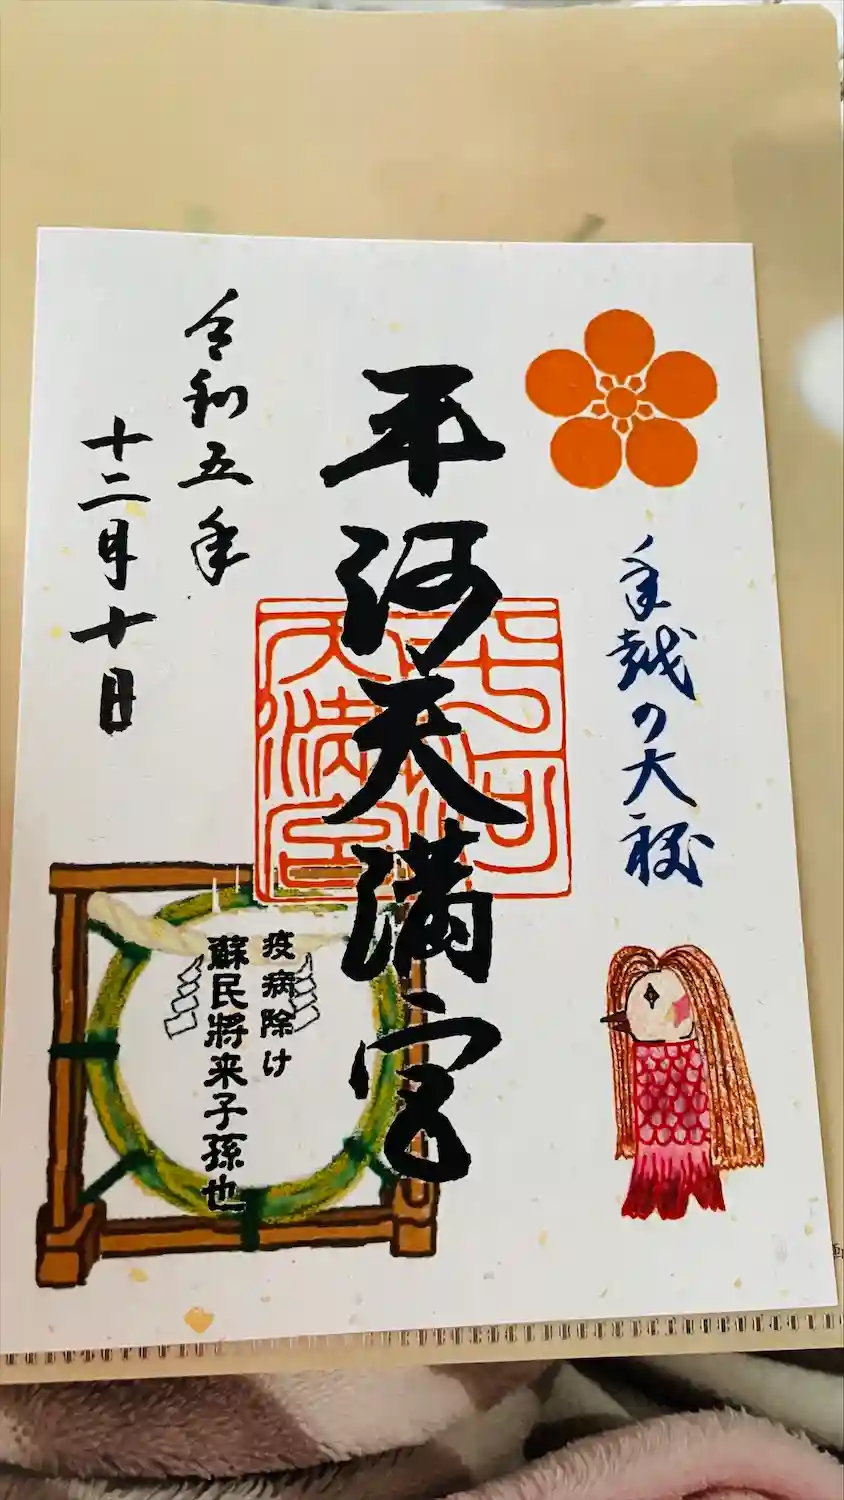 年越の大祓
平河天満宮
平河天満宮
疫病除け
蘇民將来子孫也
令和五年
十二月十日